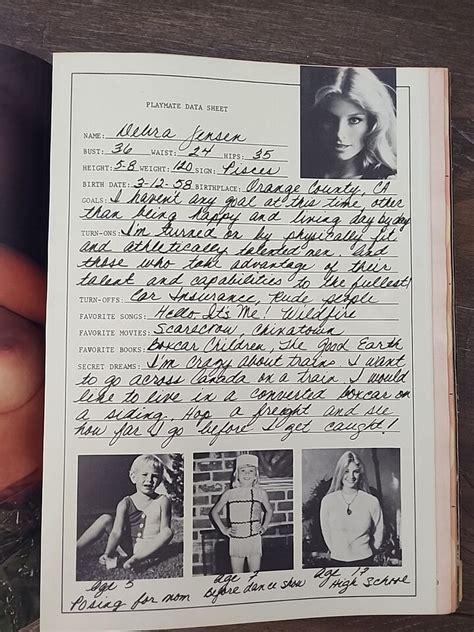 PLAYMATE DATA SHEET
NAME: Debra Jensen
BUST: 36 WAIST: 24 HIPS: 35
HEIGHT: 5-8 WEIGHT: 120 SIGN: Pisces
BIRTH DATE: 3-12-58 BIRTHPLACE: Orange County, CA
GOALS: I haven't any goal at this time other
than being happy and living day by day
TURN-ONS: I'm turned on by physically fit
and athletically talented men. and
those who take advantage of their
talent and capabilities to the fullest!
TURN-OFFS: Car Insurance, Rude people
FAVORITE SONGS: Hello It's Me! Wildfire
FAVORITE MOVIES: Scarecrow, Chinatown
FAVORITE BOOKS: Boxcar Children, The Good Earth
SECRET DREAMS: I'm crazy about trains. I want
to go across Canada on a train. I would
like to live in a converted boxcar on
a siding. Hop a freight and see
how far I go before I get caught!
Age 5
Posing for mom
age 7
Before dance show
age 17
High School